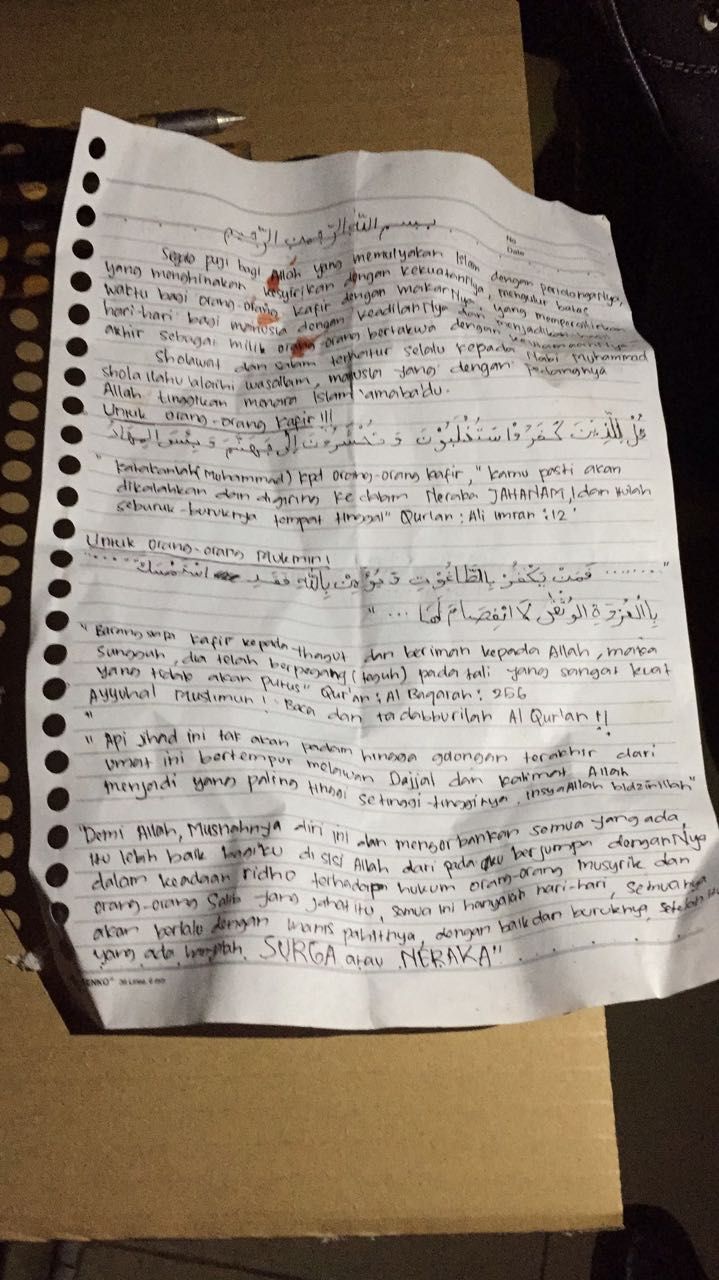 بسم الله الرحمن الرحيم
No
Date
Segala puji bagi Allah yang memulyakan Islam dengan pertolonganNya,
yang menghinakan kesyirikan dengan kekuatanNya, mengulur batas
waktu bagi orang-orang kafir dengan makarNya, yang mempergilirkan
hari-hari bagi manusia dengan keadilanNya dan menjadikan
akhir sebagai milik orang-orang bertakwa dengan
Sholawat dan salam terhatur selalu kepada Nabi Muhammad
shola ilahu alaihi wasallam, manusia yang dengan pedangnya
Allah tinggikan menara Islam 'amaba'du.
Untuk orang-orang kafir!!!
قُلْ لِلَّذِيْنَ كَفَرُوْا سَتُغْلَبُوْنَ وَتُحْشَرُوْنَ إِلَى جَهَنَّمَ وَبِئْسَ الْمِهَادُ
" Katakanlah (Muhammad) kpd orang-orang kafir, " kamu pasti akan
dikalahkan dan digiring ke dalam Neraka JAHANAM, dan itulah
seburuk-buruknya tempat tinggal" Qur'an : Ali Imran : 12'
Untuk orang-orang Mukmin!
"........ فَمَنْ يَكْفُرْ بِالطَّاغُوْتِ وَيُؤْمِنْ بِاللهِ فَقَدِ اسْتَمْسَكَ ......
بِالْعُرْوَةِ الْوُثْقَى لَا انْفِصَامَ لَهَا ... "
" Barang siapa kafir kepada thagut dan beriman kepada Allah, maka
sungguh, dia telah berpegang (teguh) pada tali yang sangat kuat
yang tidak akan putus" Qur'an : Al Baqarah : 256
Ayyuhal Muslimun! Baca dan tadabburilah Al Qur'an !!
"
" Api Jihad ini tak akan padam hingga golongan terakhir dari
umat ini bertempur melawan Dajjal dan kalimat Allah
menjadi yang paling tinggi setinggi-tingginya, insyaAllah bidznillah"
"Demi Allah, Musnahnya diri ini dan mengorbankan semua yang ada,
itu lebih baik bagiku di sisi Allah dari pada aku berjumpa denganNya
dalam keadaan ridho terhadap hukum orang-orang musyrik dan
orang-orang Salib yang jahat itu, semua ini hanyalah hari-hari, semuanya
akan berlalu dengan manis pahitnya, dengan baik dan buruknya, setelah itu
yang ada hanyalah SURGA atau NERAKA"